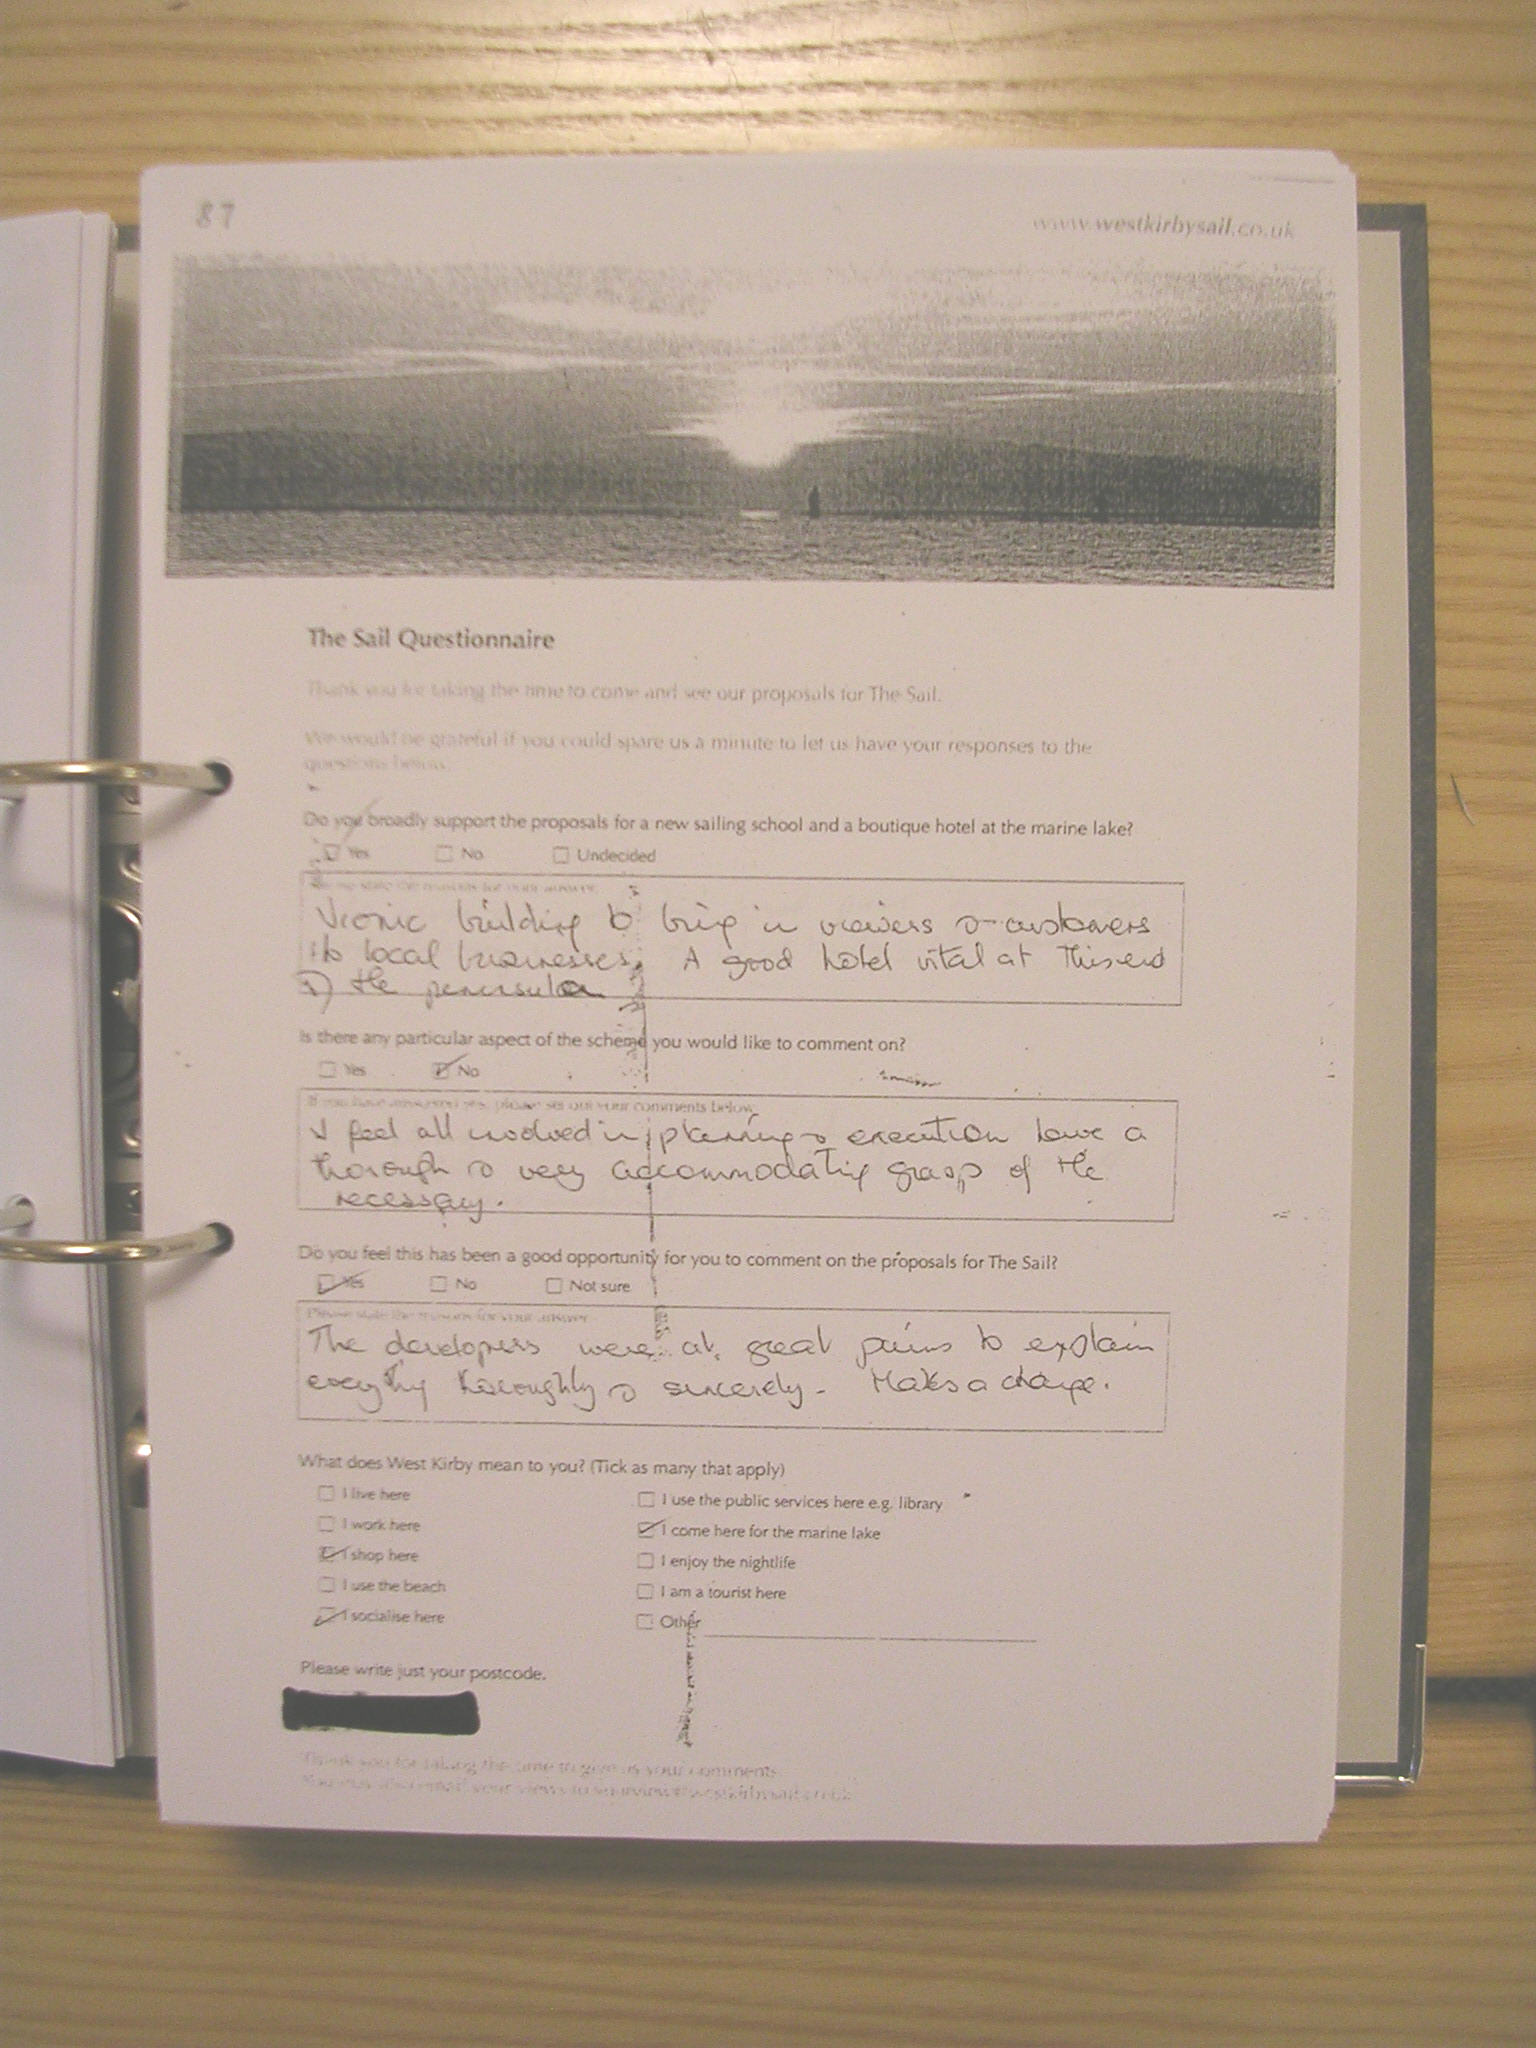 87
www.westkirbysail.co.uk
The Sail Questionnaire
Thank you for taking the time to come and see our proposals for The Sail.
We would be grateful if you could spare us a minute to let us have your responses to the
questions below.
Do you broadly support the proposals for a new sailing school and a boutique hotel at the marine lake?
Yes No Undecided
Please state the reasons for your answer
Iconic building to bring in viewers & customers
to local businesses. A good hotel vital at this end
of the peninsula
Is there any particular aspect of the scheme you would like to comment on?
Yes No
If you have answered yes, please set out your comments below
I feel all involved in planning & execution have a
thorough & very accommodating grasp of the
necessary.
Do you feel this has been a good opportunity for you to comment on the proposals for The Sail?
Yes No Not sure
Please state the reasons for your answer
The developers were at great pains to explain
everything thoroughly & sincerely - Makes a change.
What does West Kirby mean to you? (Tick as many that apply)
I live here
I work here
I shop here
I use the beach
I socialise here
I use the public services here e.g. library
I come here for the marine lake
I enjoy the nightlife
I am a tourist here
Other
Please write just your postcode.
Thank you for taking the time to give us your comments.
You may also email your views to